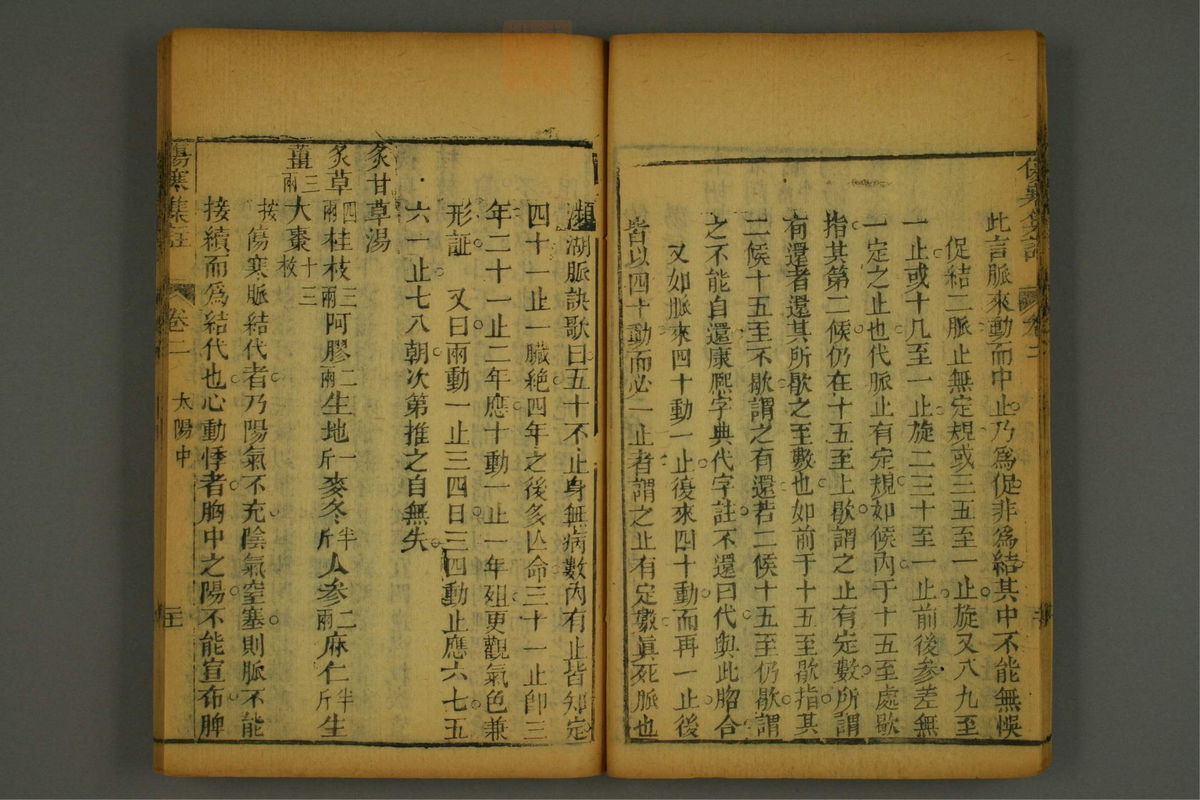 此言脈來動而中止乃為促非為結其中不能無悞
促結二脈止無定規或三五至一止旋又八九至
一止或十几至一止旋二三十至一止前後參差無
一定之止也代脈止有定規如候內于十五至處歇
指其第二候仍在十五至上歇謂之止有定數所謂
有還者還其所歇之至數也如前于十五至歇指其
二候十五至不歇謂之有還若二候十五至仍歇謂
之不能自還康熈字典代字註不還曰代與此脗合
又如脈來四十動一止復來四十動而再一止後
皆以四十動而必一止者謂之止有定數眞死脈也
瀕湖脈訣歌曰五十不止身無病數內有止皆知定
四十一止一臟絶四年之後多亾命三十一止卽三
年二十一止二年應十動一止一年殂更觀氣色兼
形証　又曰兩動一止三四日三四動止應六七五
六一止七八朝次第推之自無失
炙甘草湯
炙草四兩桂枝三兩阿膠二兩生地一斤麥冬半斤人參二兩麻仁半斤生
薑三兩大棗十三枚
按傷寒脈結代者乃陽氣不充陰氣窒塞則脈不能
接續而為結代也心動悸者胸中之陽不能宣布脾
傷寒集註
卷二
太陽中